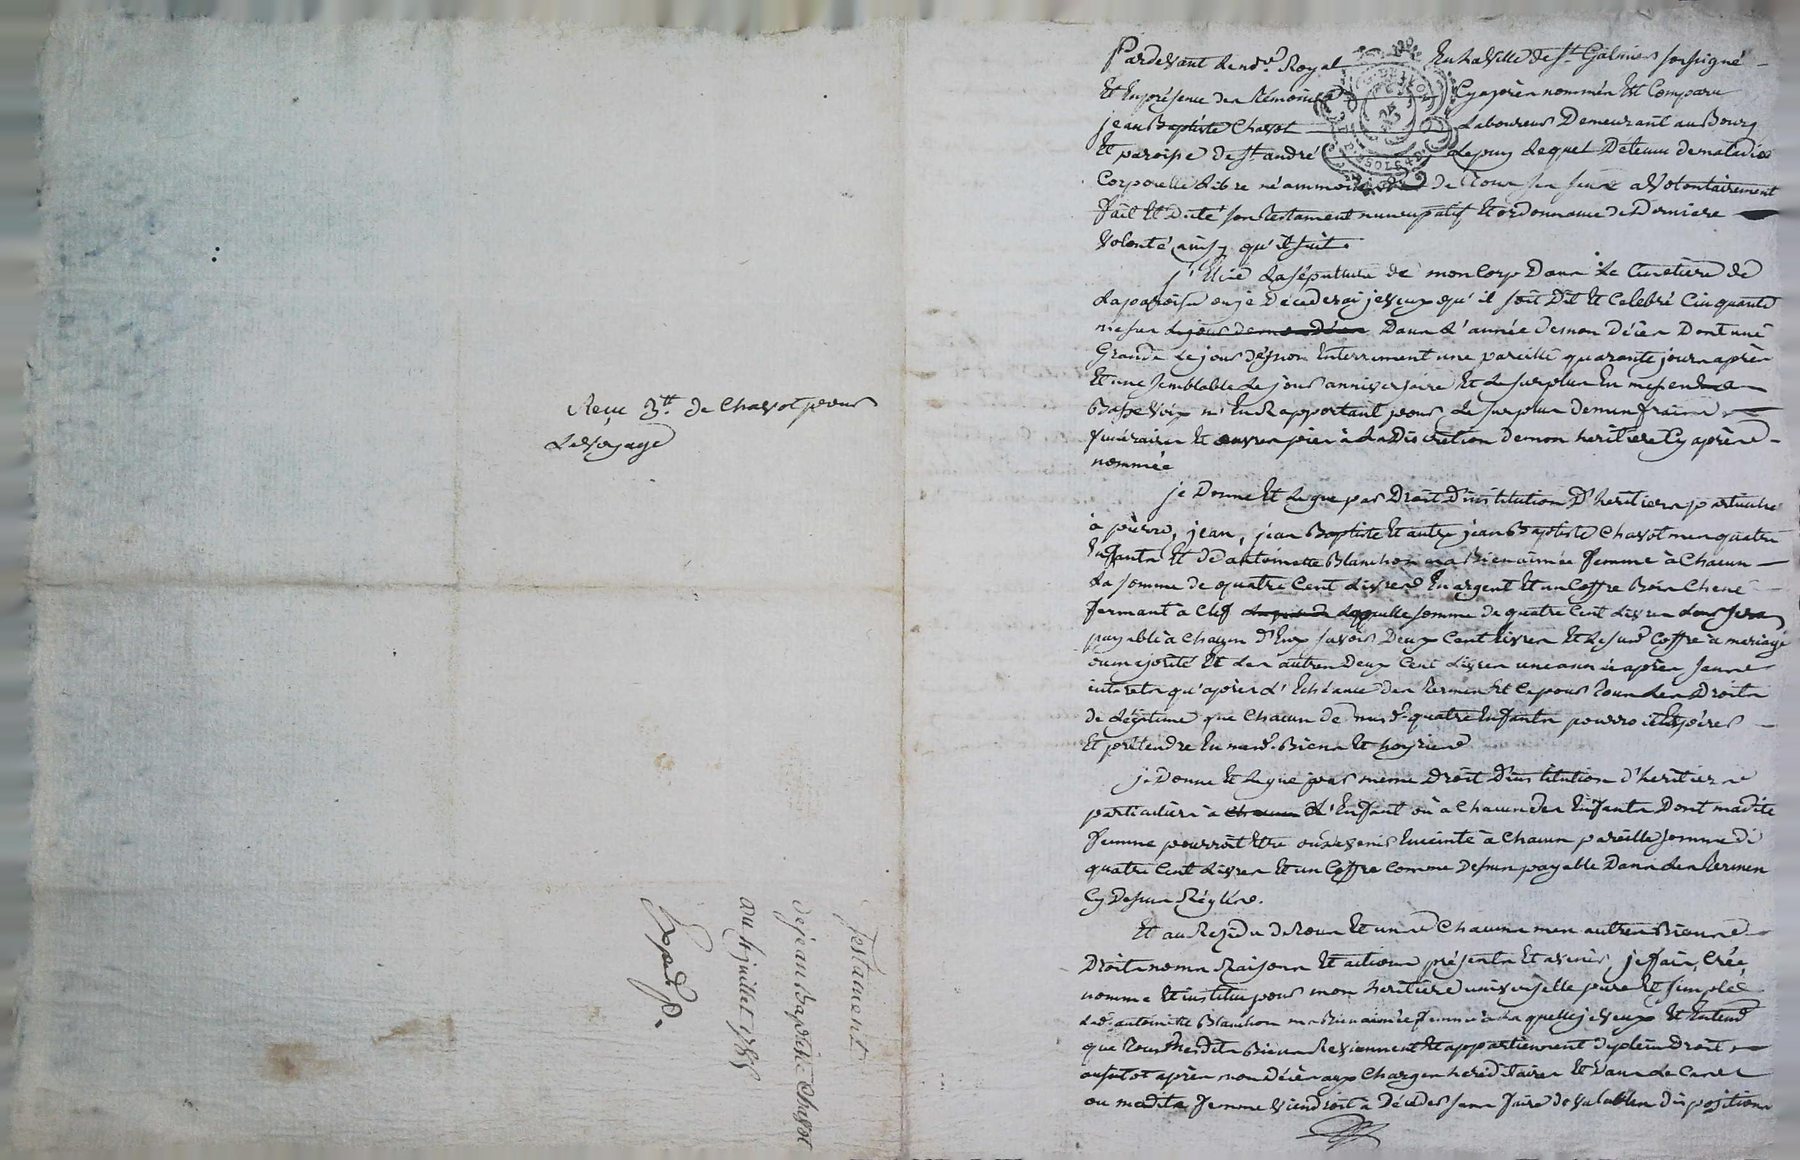 Reçu 3ᵗᵗ de Chavot pour
Le voyage
Testament
de jean baptiste Chavot
du 4 juillet 1785
Pardevant Le nore. Royal En La Ville de St. Galmier soussigné
Et En présence des témoins Cy après nommés Est Comparu
jean Baptiste Chavot Laboureur Demeurant au Bourg
Et paroisse de St. andré Le puy Lequel Détenu de maladie
Corporelle Libre néammoins de tous ses sens a Volontairement
fait Et Dicté son testament nuncupatif Et ordonnance de Derniere
Volonté ainsy qu'il suit.
j'Elis La sépulture de mon Corp Dans Le Cimetiere de
La paroisse ou je Décederai je veux qu'il soit Dit Et Celebré Cinquante
messes Le jour de mon Décès Dans L'année de mon Décès Dont une
Grande Le jour de mon Enterrement une pareille quarante jours après
Et une semblable Le jour anniversaire Et Le surplus En messes
Basse Voix m'En Rapportant pour Le surplus de mes frais
funéraires Et œuvres pies à La Discretion de mon heritiere Cy après
nommée
je Donne Et Legue par Droit D'institution D'heritiers particuliers
à pierre, jean, jean Baptiste Et autre jean Baptiste Chavot mes quatre
Enfants Et de antoinette Blanchon ma Bien aimée femme à Chacun
La somme de quatre Cent Livres En argent Et un Coffre Bois Chene
fermant à Clef Laquelle somme de quatre Cent Livres sera
payable à Chacun d'Eux savoir Deux Cent Livres Et Le susd. Coffre à mariage
ou majorité Et Les autres Deux Cent Livres une année après sans
interets qu'après L'Echéance des termes Et Ce pour tous Les Droits
de Légitime que Chacun de mesd. quatre Enfants pourroit Espérer
Et prétendre En mesd. Biens Et hoyrie
je Donne Et Legue par meme Droit D'institution d'heritiers
particuliers à Chacun L'Enfant ou à Chacun des Enfants Dont madite
femme pourroit Etre ou devenir Enceinte à Chacun pareille somme de
quatre Cent Livres Et un Coffre Comme Dessus payable Dans Les termes
Cy Dessus Réglés.
Et au Residu de tous Et uns Chacuns mes autres Biens
Droits noms Raisons Et actions présents Et avenir je fais, Crée,
nomme Et institue pour mon heritiere universelle pure Et simple
Lade. antoinette Blanchon ma Bien aimée femme à La quelle je veux Et Entend
que tous mesdits Biens Reviennent Et appartiennent de plein Droit
aussitot après mon Décès aux Charges héréditaires Et Dans Le Cas
ou madite femme Viendroit à Décéder sans faire de valables dispositions